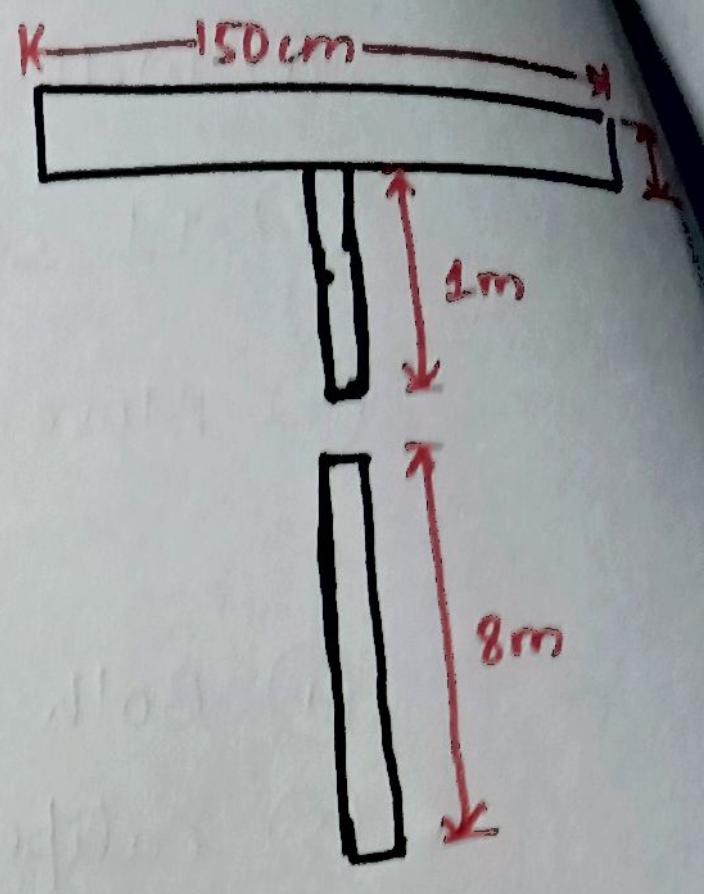 150cm
1m
8m